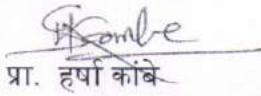 प्रा. हर्षा कांबे